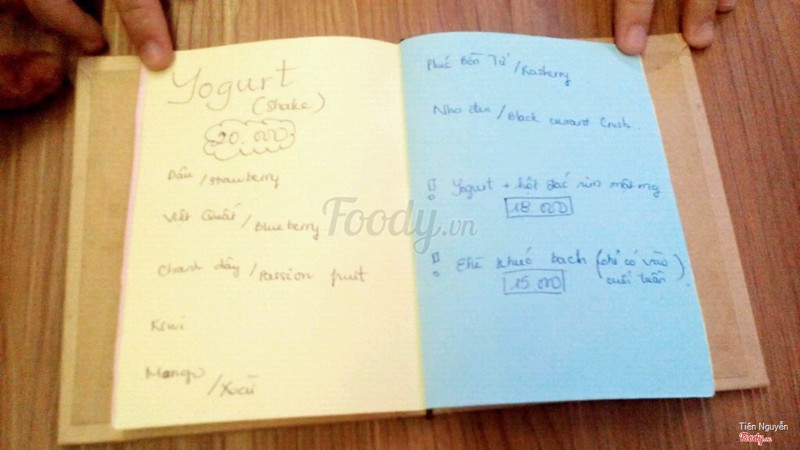 Yogurt
(Shake)
20.000
Dâu / Strawberry
Việt Quất / Blueberry
Chanh dây / Passion fruit
Kiwi
Mango / Xoài
Phúc Bồn Tử / Rasberry
Nho đen / Black currant Crush.
!! Yogurt + hột đác rim mật ong
18.000
!! Chè khúc bạch (chỉ có vào cuối tuần)
15.000
Foody.vn
Tiên Nguyễn
Foody.vn